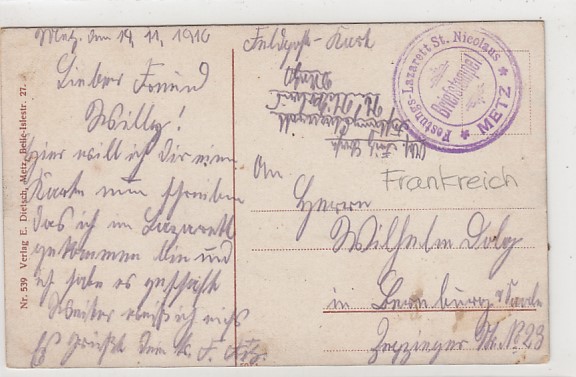 Metz, den 14. 11. 1916
Lieber Freund
Willy!
Hier will ich Dir eine
Karte nun schreiben
das ich im Lazarett
gekommen bin und
ich habe es geschafft
Weiter weiß ich nichts
Es grüßt dein
Feldpost-Karte
Abs.
Festungslazarett
St. Nikolaus
Metz
Festungs-Lazarett St. Nicolaus
METZ
Briefstempel
An
Frankreich
Herrn
Wilhelm
in Bernburg a/Saale
Str. No 23
Nr. 539 Verlag E. Dietsch, Metz, Belle-Islestr. 27.